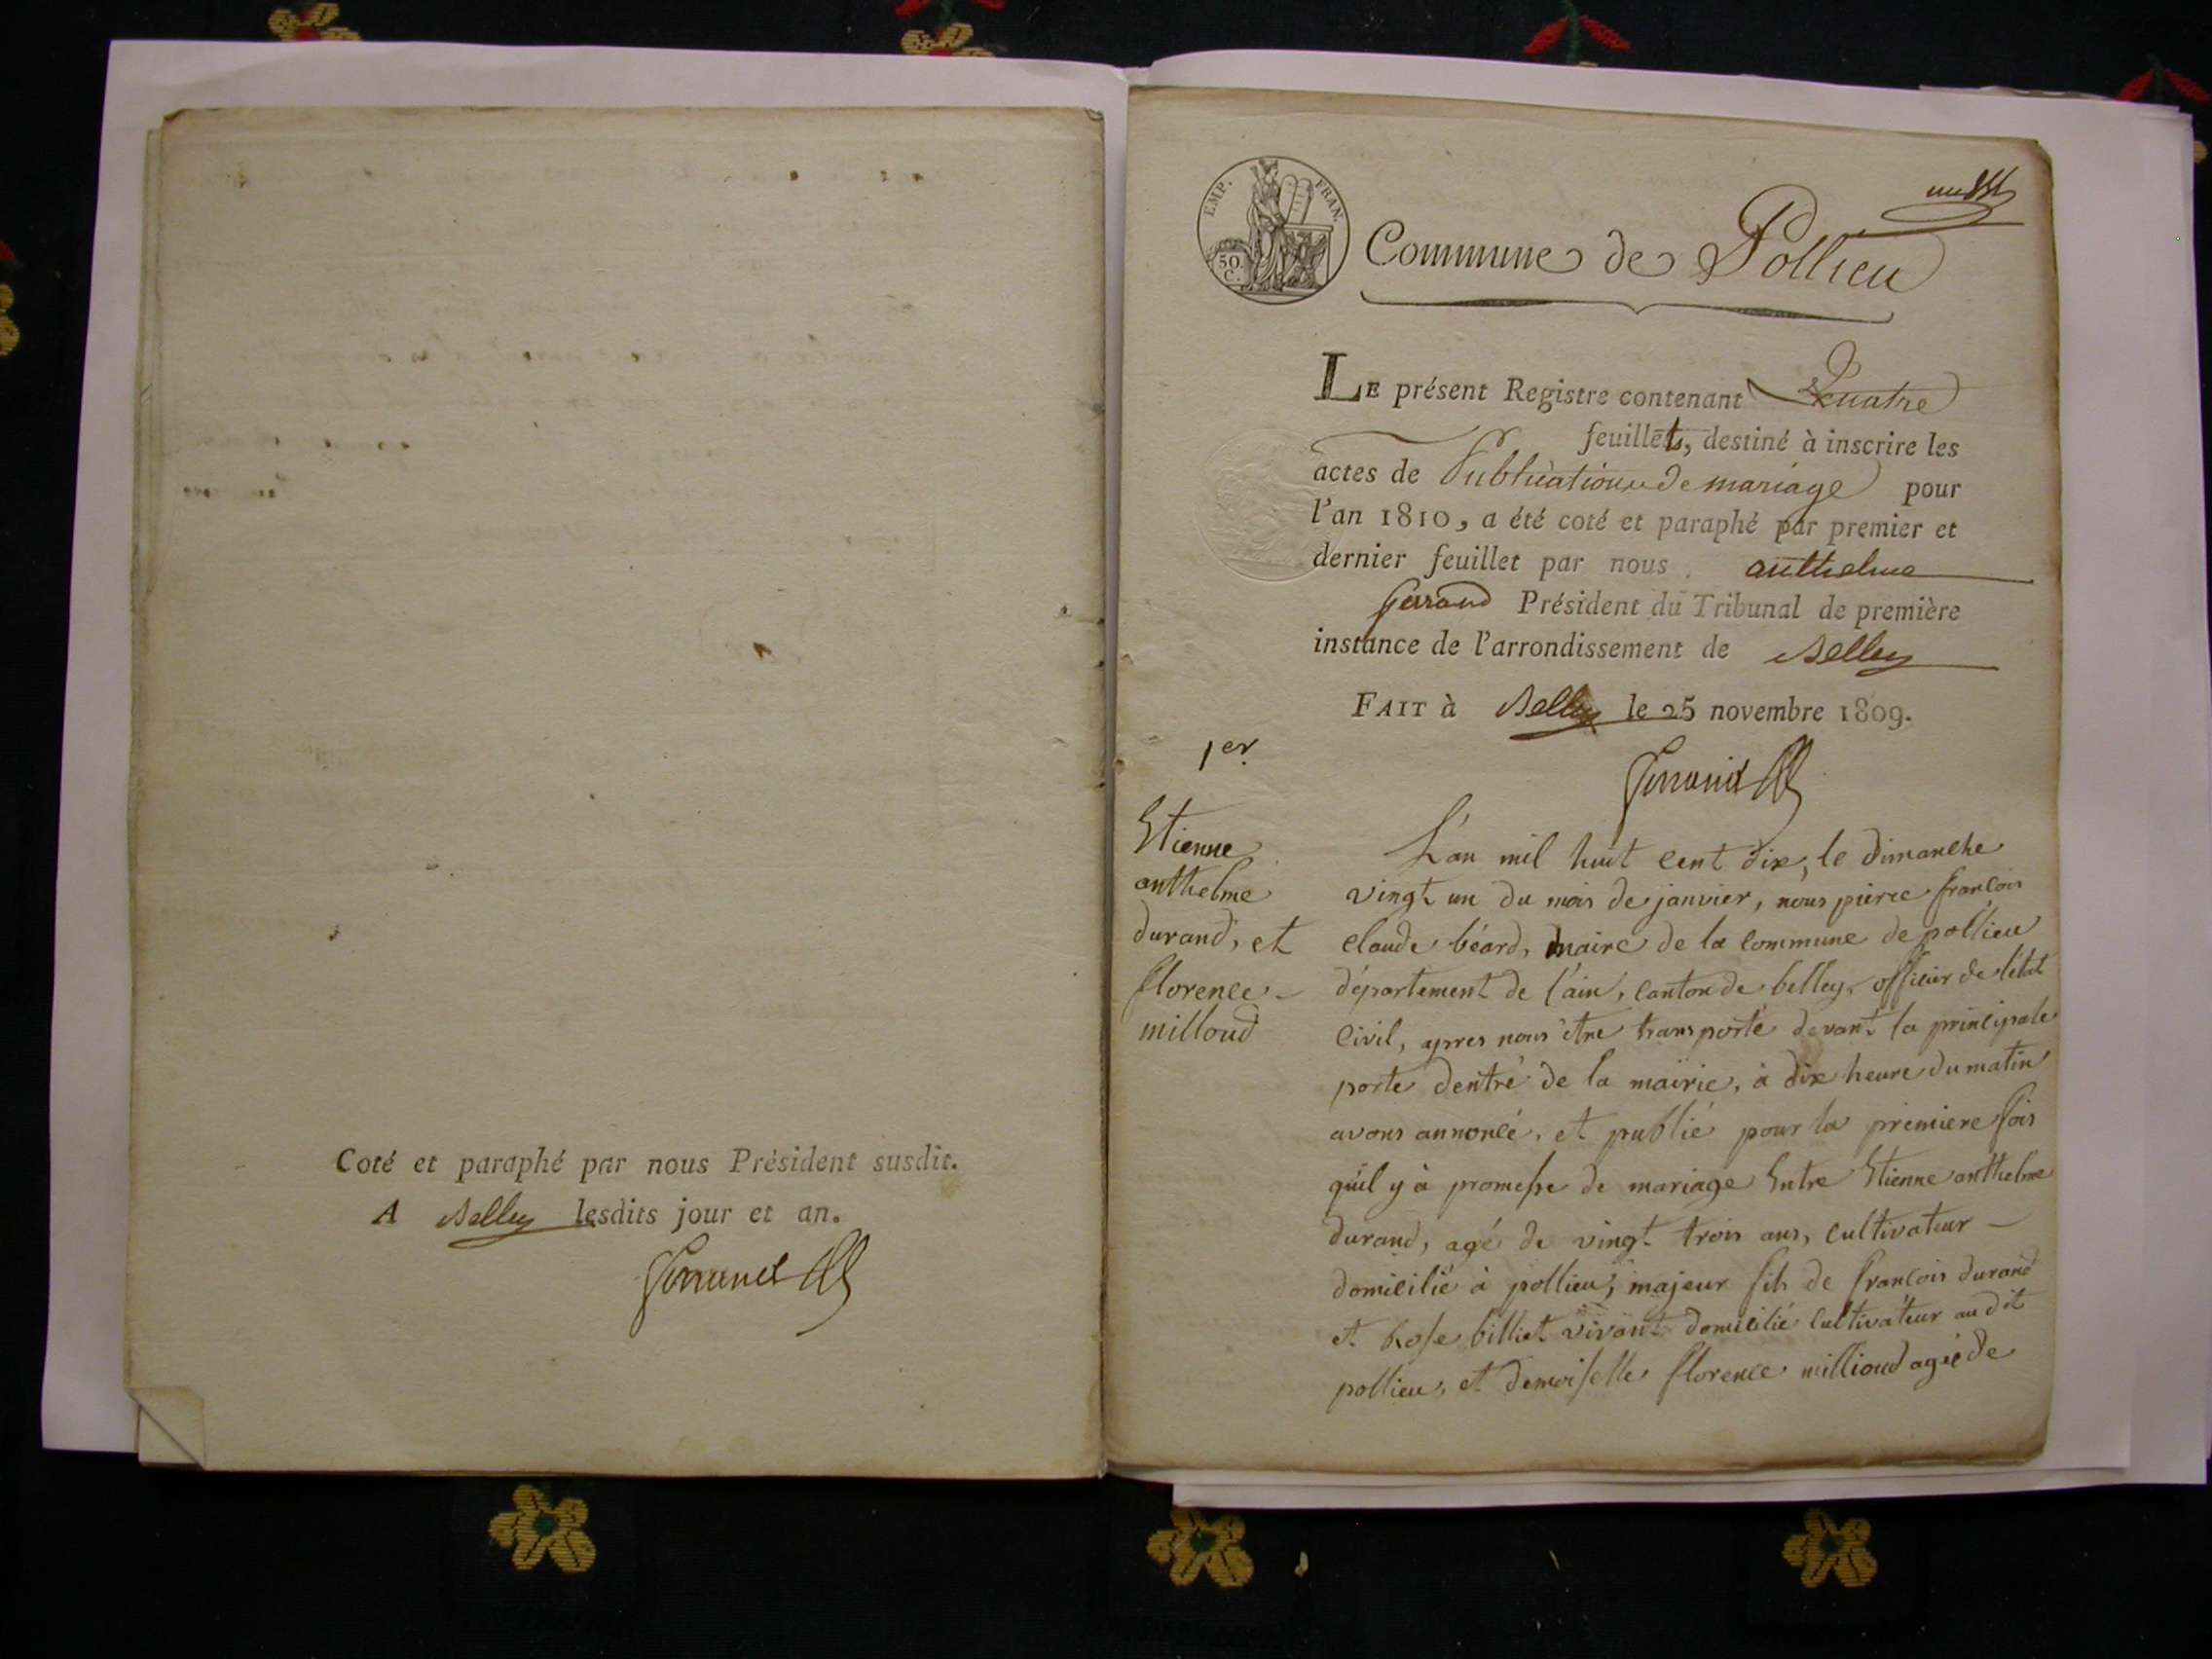 Coté et paraphé par nous Président susdit.
A Belley lesdits jour et an.
EMP. FRAN.
50
C.
Commune de Pollieu
LE présent Registre contenant Quatre
feuillets, destiné à inscrire les
actes de Publication de mariage pour
l'an 1810, a été coté et paraphé par premier et
dernier feuillet par nous anthelme
Président du Tribunal de première
instance de l'arrondissement de Belley
FAIT à Belley le 25 novembre 1809.
1er
Etienne
anthelme
durand, et
florence
milloud
L'an mil huit cent dix, le dimanche
vingt un du mois de janvier, nous pierre francois
claude béard, maire de la commune de pollieu
département de l'ain, canton de belley, officier de l'état
civil, apres nous être transporté devant la principale
porte dentré de la mairie, à dix heure du matin
avons annoncé, et publié pour la premiere fois
quil y à promesse de mariage Entre Etienne anthelme
durand, agé de vingt trois ans, cultivateur
domicilié à pollieu, majeur fils de francois durand
et Rose billiet vivant domicilié cultivateur au dit
pollieu, et demoiselle florence millioud agée de